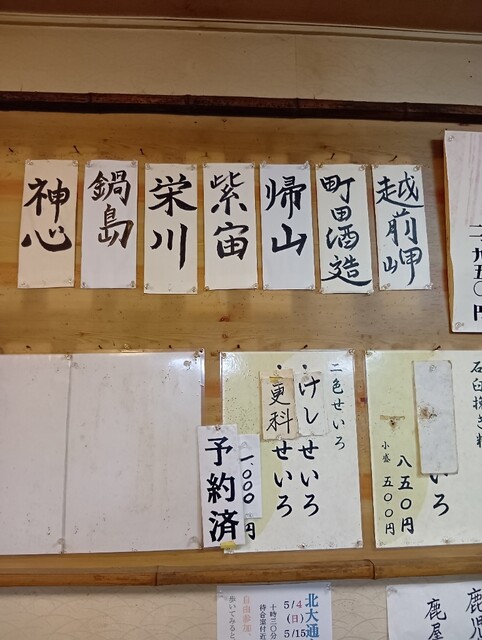 越前岬
町田酒造
帰山
紫宙
栄川
鍋島
神心
九五〇円
石臼挽き粉
いろ
八五〇円
小盛 五〇〇円
二色せいろ
・けしせいろ
・更科せいろ
一、〇〇〇円
予約済
北大通
5/4
(日)
5/15
十時三〇分
待合室付近
自由参加
歩いてみると
鹿児
鹿屋